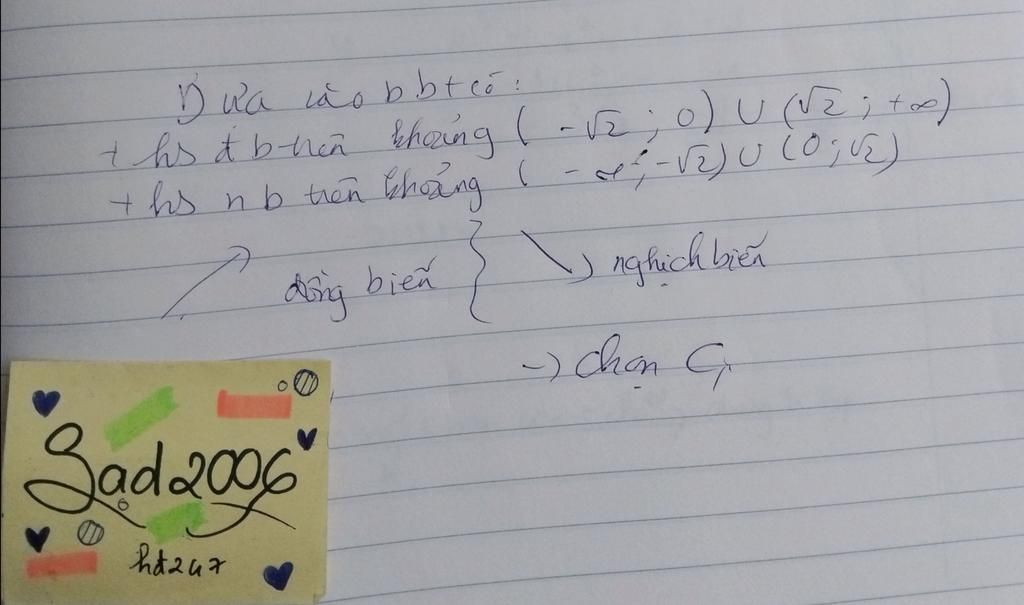 Dựa vào bbt có:
+ hs đb trên khoảng (-√2; 0) ∪ (√2; +∞)
+ hs nb trên khoảng (-∞; -√2) ∪ (0; √2)
đồng biến } nghịch biến
→ chọn C,
Sad2006
hd247